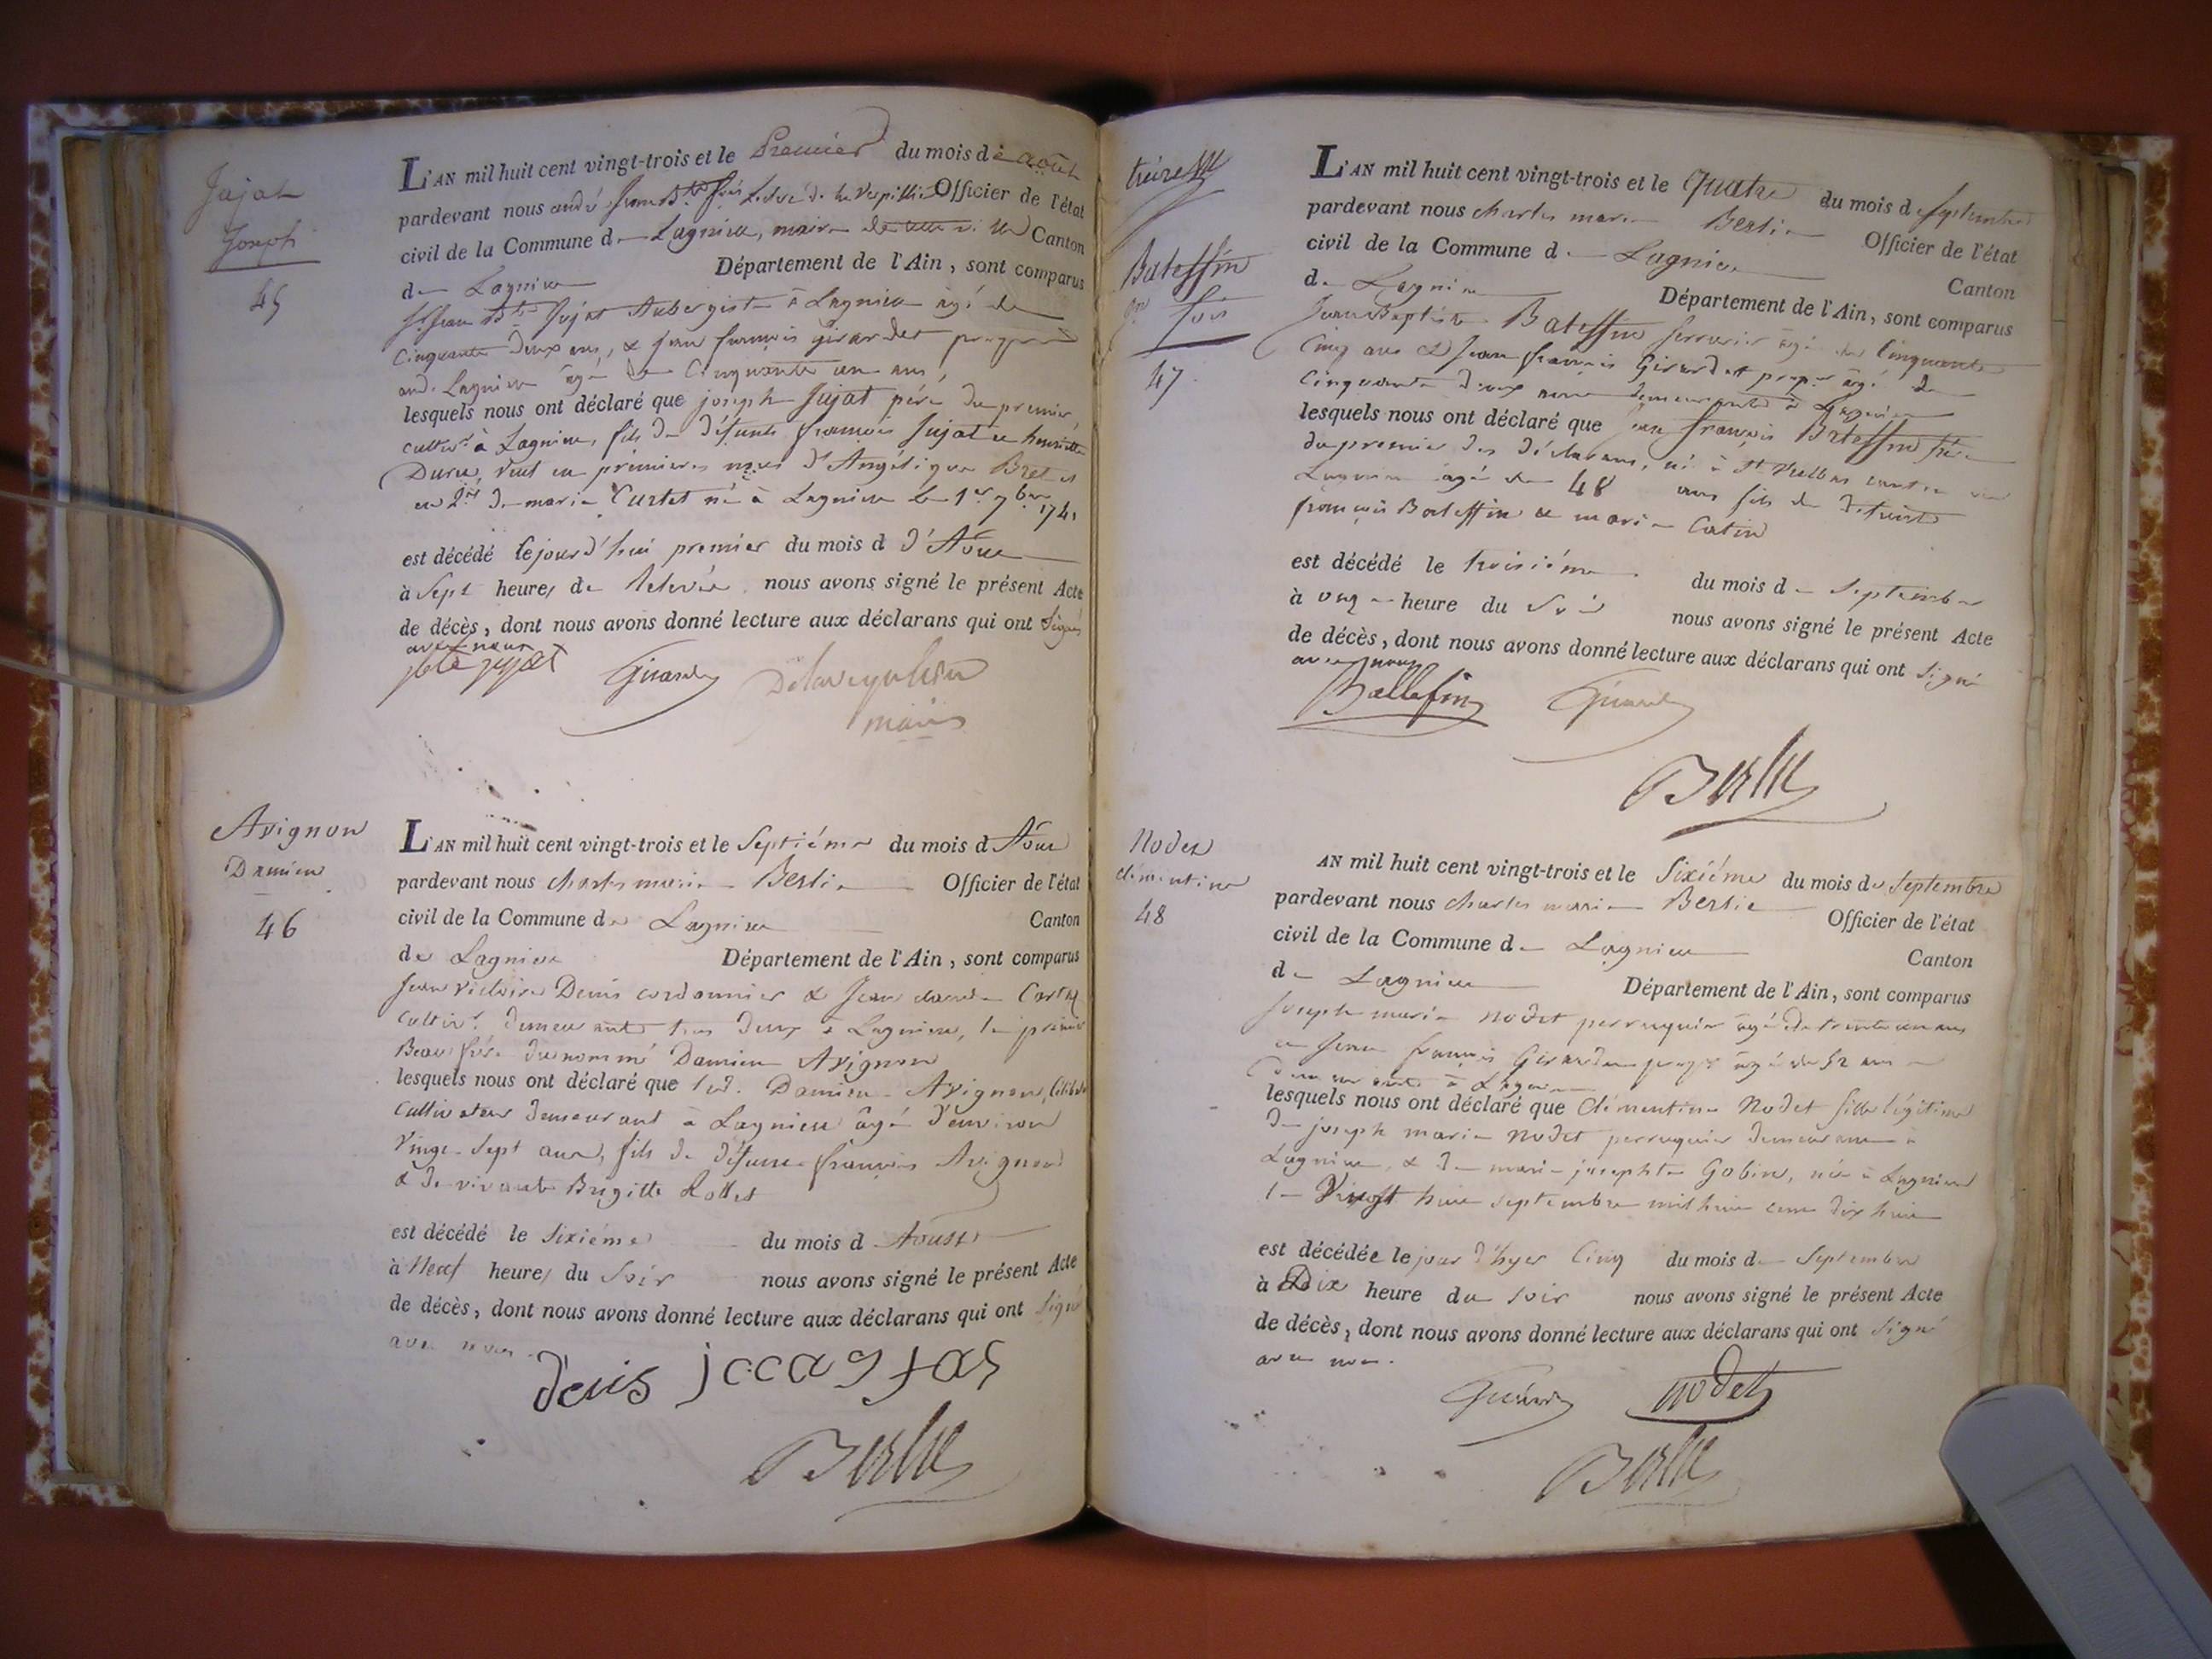 Jujat
Joseph
45
L'AN mil huit cent vingt-trois et le Premier du mois de août
pardevant nous andré Jean Bte Officier de l'état
civil de la Commune de Lagnieu, maire de Canton
de Lagnieu Département de l'Ain, sont comparus
Sr Jean Bte Jujat Aubergiste à Lagnieu âgé de
Cinquante deux ans, & jean françois girardet
Lagnieu âgé de Cinquante un ans,
lesquels nous ont déclaré que joseph Jujat père du premier
cultivr à Lagnieu, fils de défunts françois Jujat et henriette
Duru, veuf en premieres noces d'Angélique Bret et
en 2des de marie Curtet né à Lagnieu le 1er 7bre 1741
est décédé le jourd'hui premier du mois d d'Aôut
à Sept heures de relevée nous avons signé le présent Acte
de décès, dont nous avons donné lecture aux déclarans qui ont signés
avec nous
jbte jujat Girardet
maire
Avignon
Damien
46
L'AN mil huit cent vingt-trois et le Septiéme du mois d Aôut
pardevant nous charles marie Berlie Officier de l'état
civil de la Commune de Lagnieu Canton
de Lagnieu Département de l'Ain, sont comparus
Jean victoire Denis cordonnier & Jean claude
Cultivr demeurants tous deux à Lagnieu, le premier
Beau frére du nommé Damien Avignon
lesquels nous ont déclaré que led. Damien Avignon, Célibat
cultivateur demeurant à Lagnieu âgé d'environ
Vingt-sept ans, fils de défunt françois Avignon
& de vivante Brigitte Rollet
est décédé le Sixiéme du mois d Aoust
à Neuf heures du Soir nous avons signé le présent Acte
de décès, dont nous avons donné lecture aux déclarans qui ont signé
avec nous.
denis
Berlie
Bateffin
jn fois
47
L'AN mil huit cent vingt-trois et le Quatre du mois de Septembre
pardevant nous charles marie Berlie Officier de l'état
civil de la Commune de Lagnieu Canton
de Lagnieu Département de l'Ain, sont comparus
Jean Baptiste Bateffin serrurier âgé de Cinquante
Cinq ans & Jean françois Girardet propre âgé de
Cinquante deux demeurants à Lagnieu
lesquels nous ont déclaré que jean françois Bateffin frére
du premier des déclarans, né à St Vulbas canton de
Lagnieu âgé de 48 ans fils de défunts
françois Bateffin & marie Catin
est décédé le troisiéme du mois de Septembre
à onze heure du Soir nous avons signé le présent Acte
de décès, dont nous avons donné lecture aux déclarans qui ont signé
avec nous
Battefin Girardet
Berlie
Nodet
clémentine
48
AN mil huit cent vingt-trois et le Sixiéme du mois de Septembre
pardevant nous charles marie Berlie Officier de l'état
civil de la Commune de Lagnieu Canton
de Lagnieu Département de l'Ain, sont comparus
Joseph marie nodet perruquier âgé de trente un ans
et Jean françois Girardet propre âgé de 52 ans
demeurants à Lagnieu
lesquels nous ont déclaré que Clémentine Nodet fille légitime
de joseph marie nodet perruquier demeurant à
Lagnieu, & de marie josephte Gobin, née à Lagnieu
le Vingt huit septembre mil huit cent dix huit
est décédée le jour d'hyer Cinq du mois de Septembre
à Dix heure du soir nous avons signé le présent Acte
de décès, dont nous avons donné lecture aux déclarans qui ont signé
avec nous.
Girardet nodet
Berlie